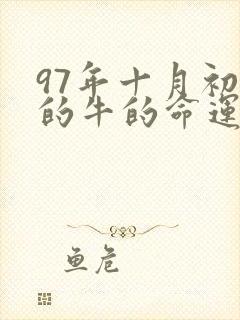 97年十月初
的牛的命运
鱼危